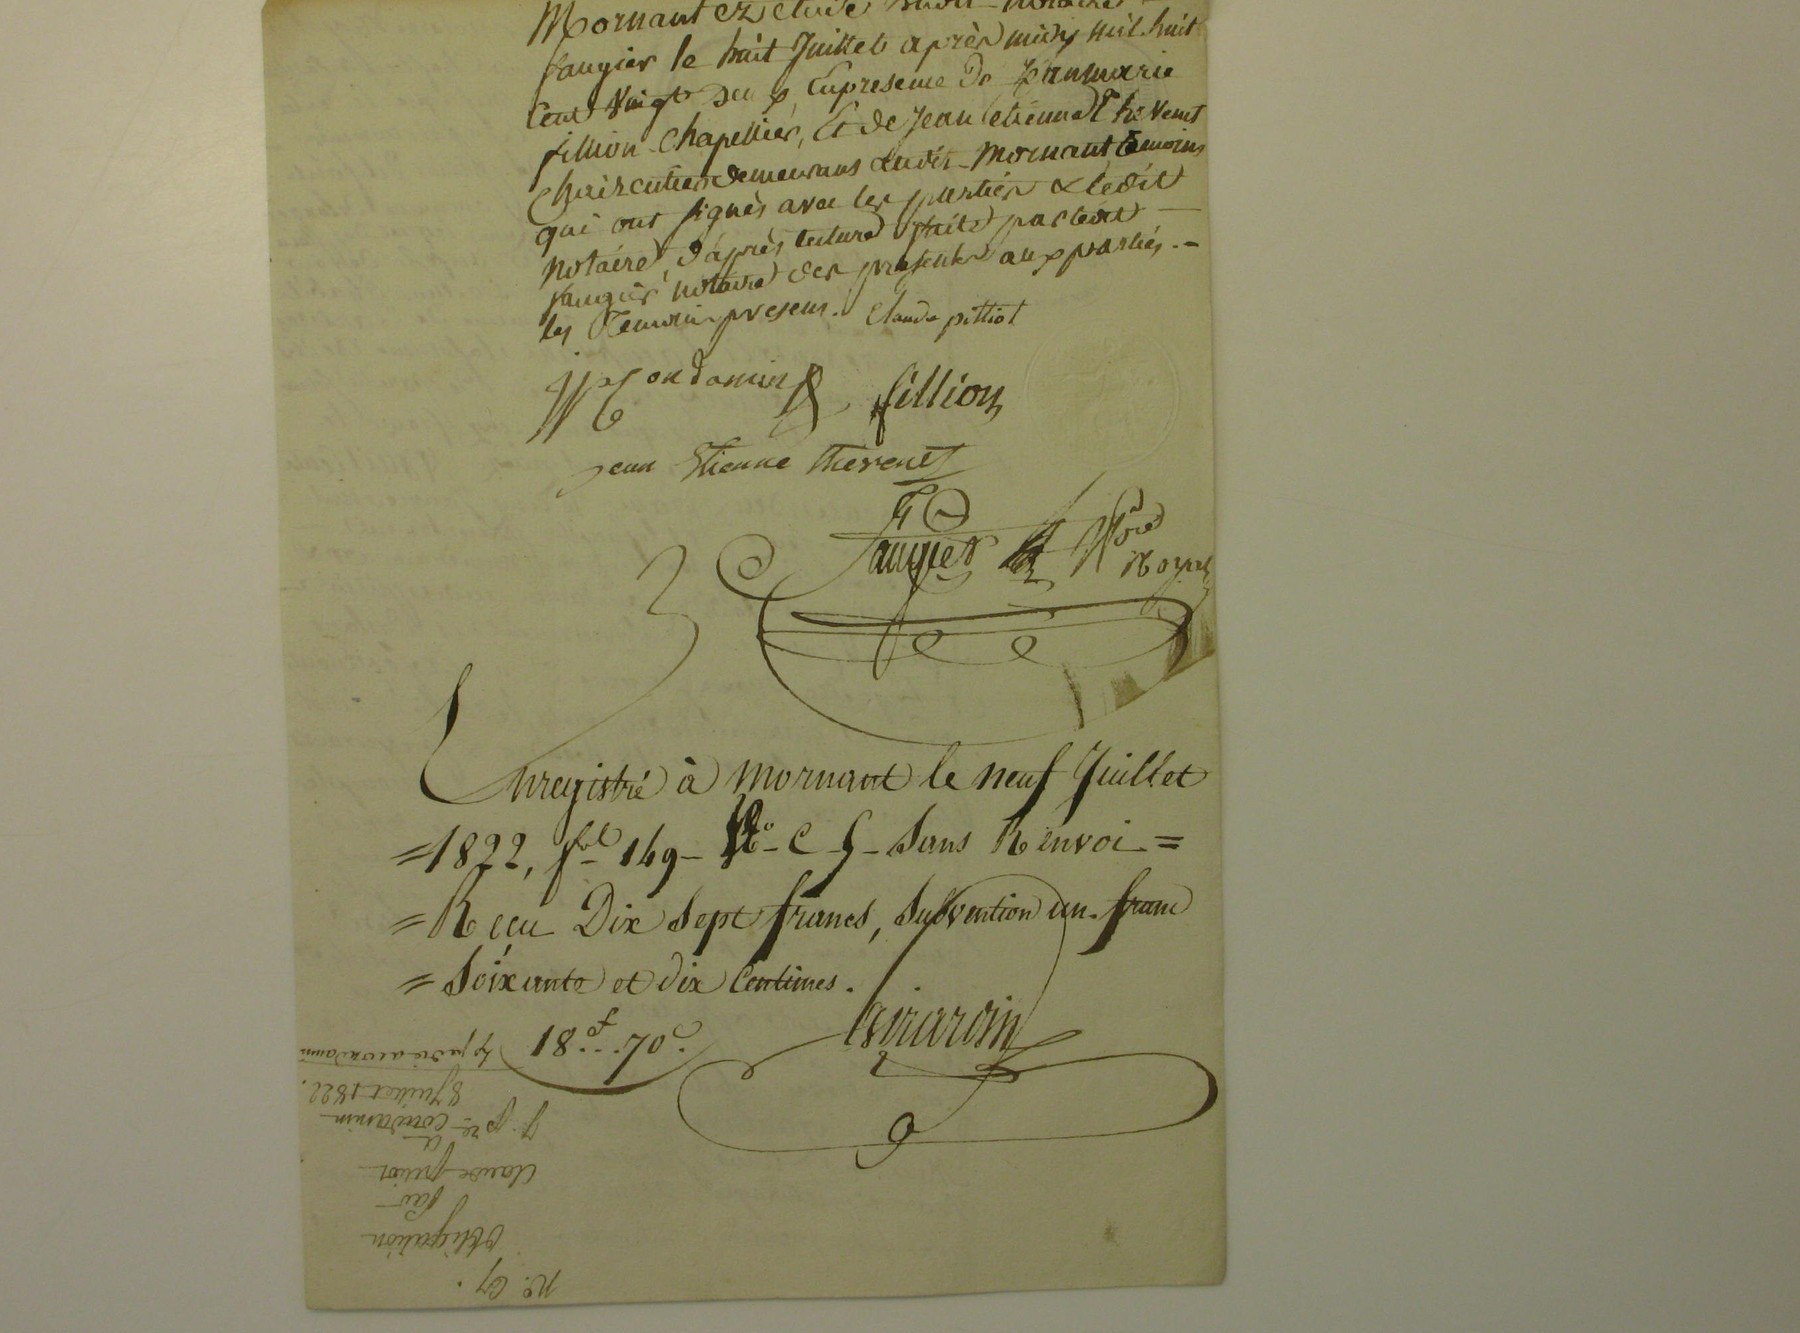 Mornant ez étude dudit notaire
faugier le huit Juillet après midy mil huit
Cent Vingt deux, En presence de Jeanmarie
fillion Chapellier, Et de Jean etienne Thevenet
Chaircutier demeurans audit Mornant témoins
qui ont signés avec les parties & ledit
notaire, d'après lecture faite par ledit
faugier notaire des presentes aux parties. -
les Temoins presens. Claude pittiot
Condamin fillion
Jean Etienne thevenet
faugier Nore Royal
Enregistré à Mornant le neuf Juillet
= 1822, fol 149 - Ro - C 5 - Sans Renvoi =
= Reçu Dix sept francs, Subvention un franc
= Soixante et dix Centimes.
18f..70c. Girardin
No. 67.
Obligation
par
Claude pitiot
a
J. pre Condamin
8 Juillet 1822.